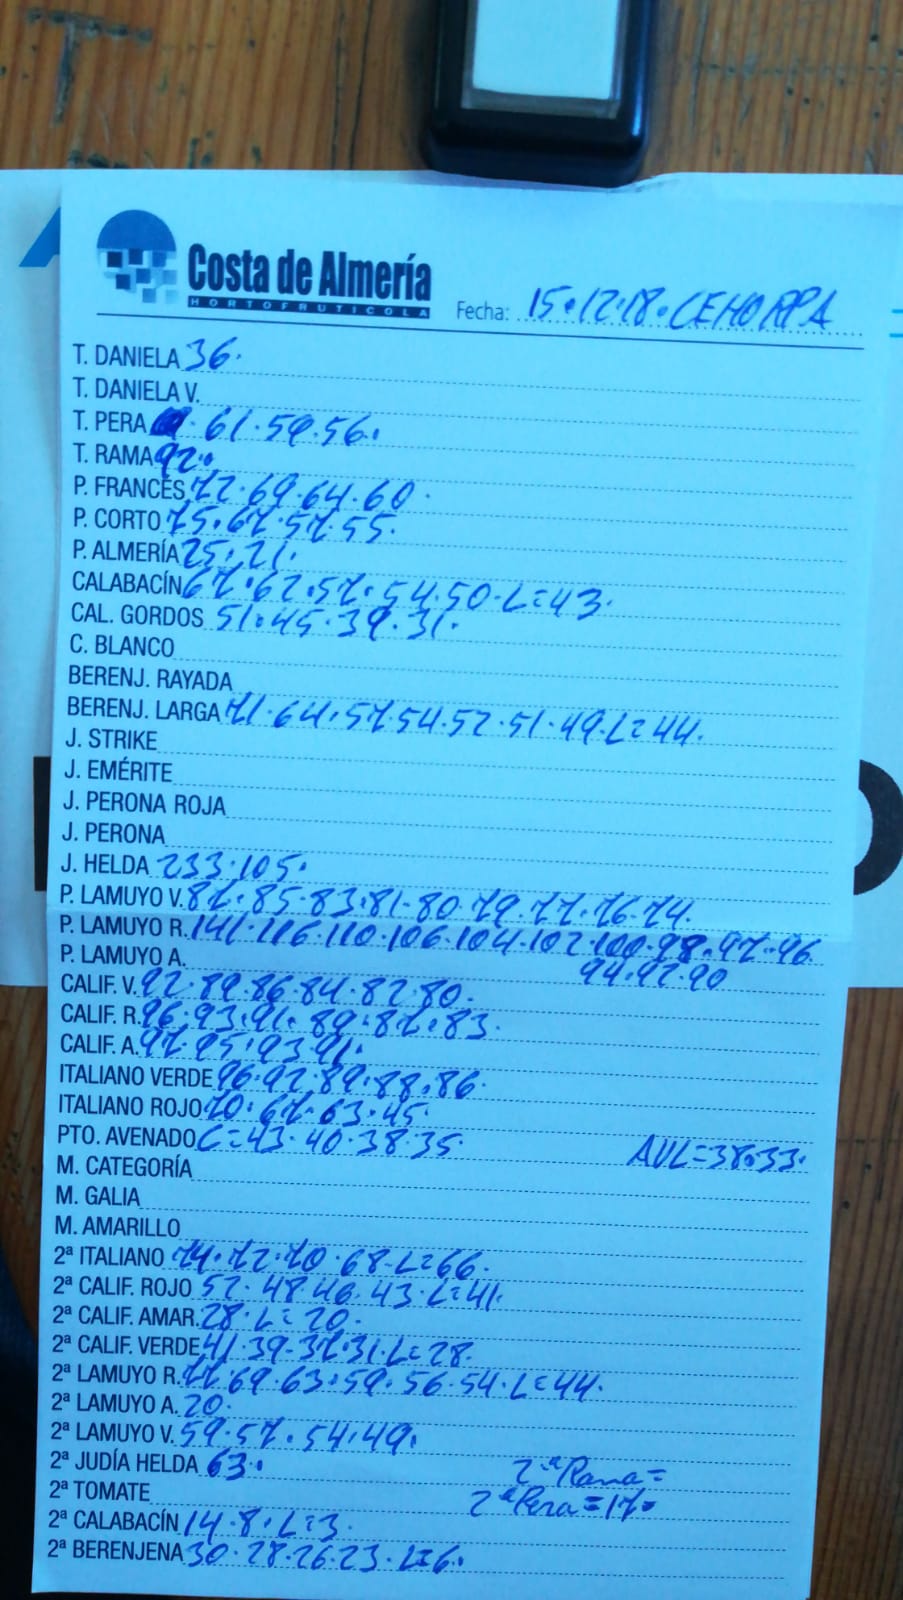 Costa de Almería
HORTOFRUTICOLA
Fecha: 15.12.18. CEHORPA
T. DANIELA 36.
T. DANIELA V.
T. PERA 61.59.56.
T. RAMA 92.
P. FRANCÉS 72.69.64.60.
P. CORTO 75.67.57.55.
P. ALMERÍA 25.21.
CALABACÍN 67.62.57.54.50.L=43.
CAL. GORDOS 51.45.39.31.
C. BLANCO
BERENJ. RAYADA
BERENJ. LARGA 71.64.57.54.52.51.49.L=44.
J. STRIKE
J. EMÉRITE
J. PERONA ROJA
J. PERONA
J. HELDA 233.105.
P. LAMUYO V. 87.85.83.81.80.79.77.76.74.
P. LAMUYO R. 141.116.110.106.104.102.100.98.97.96
P. LAMUYO A. 94.92.90
CALIF. V. 92.89.86.84.82.80.
CALIF. R. 96.93.91.89.87.83.
CALIF. A. 97.95.93.91.
ITALIANO VERDE 96.92.89.88.86.
ITALIANO ROJO 70.67.63.45.
PTO. AVENADO C=43.40.38.35. AVL=38.33.
M. CATEGORÍA
M. GALIA
M. AMARILLO
2ª ITALIANO 74.72.70.68.L=66.
2ª CALIF. ROJO 52.48.46.43.L=41.
2ª CALIF. AMAR. 28.L=20.
2ª CALIF. VERDE 41.39.37.31.L=28.
2ª LAMUYO R. 77.69.63.59.56.54.L=44.
2ª LAMUYO A. 20.
2ª LAMUYO V. 59.57.54.49.
2ª JUDÍA HELDA 63. 2ª Rama=
2ª TOMATE 2ª Pera=17=
2ª CALABACÍN 14.8.L=3.
2ª BERENJENA 30.28.26.23.L=6.